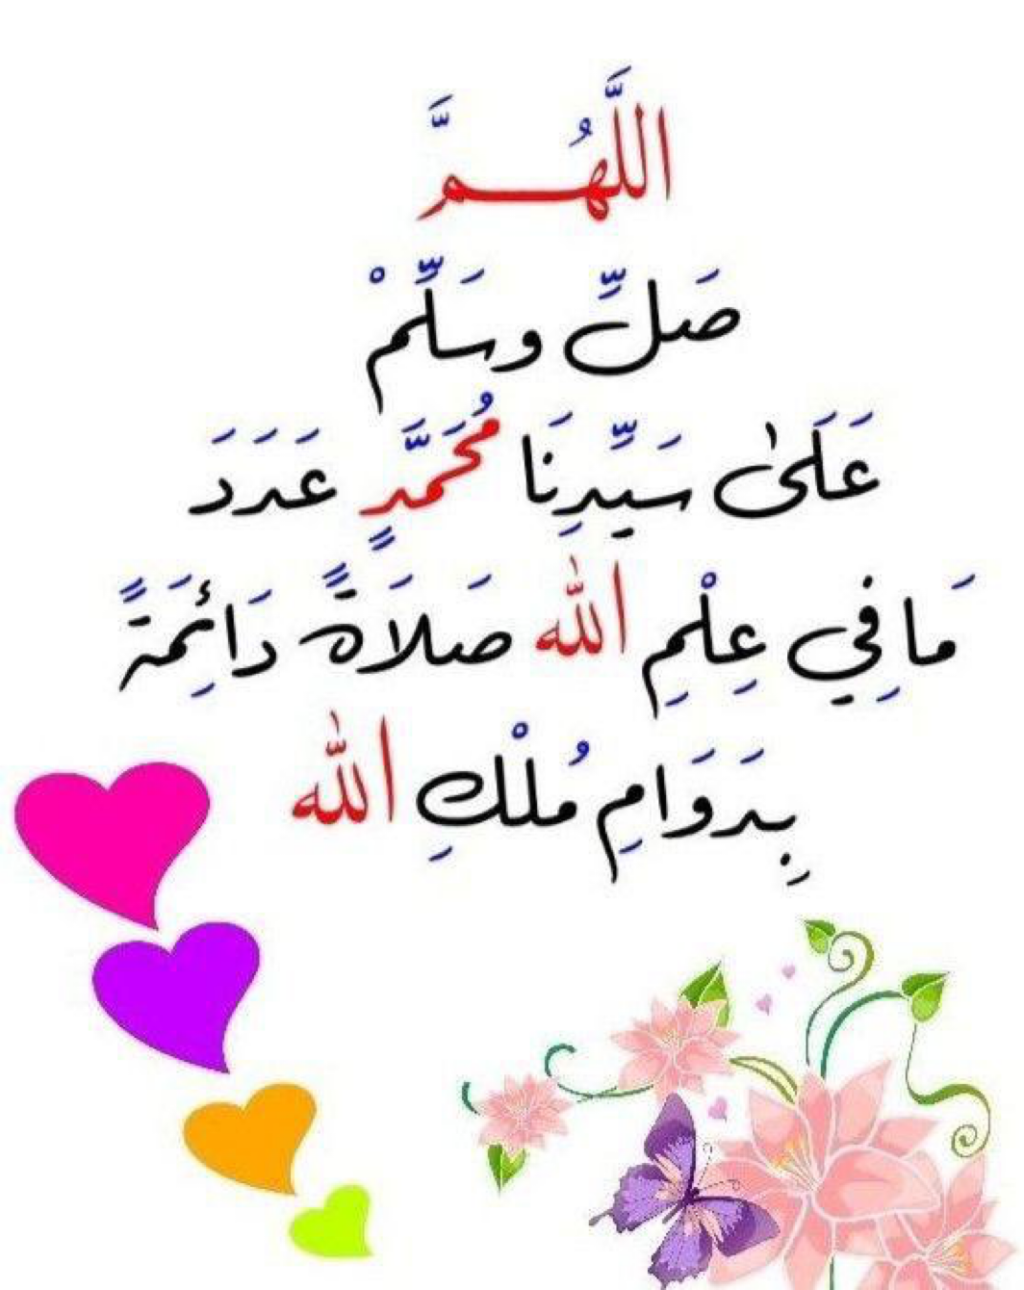 اللَّهُمَّ
صَلِّ وسَلِّمْ
عَلَىٰ سَيِّدِنَا مُحَمَّدٍ عَدَدَ
مَا فِي عِلْمِ اللّٰه صَلَاةً دَائِمَةً
بِدَوَامِ مُلْكِ اللّٰه